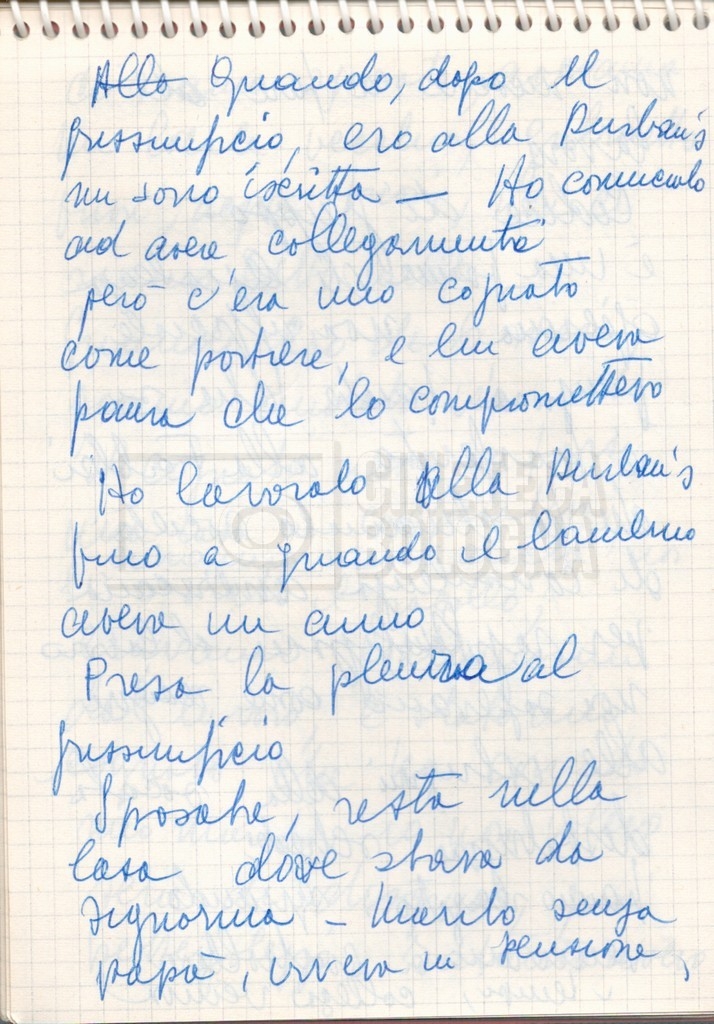 ~~Allo~~ Quando, dopo il
pressificio, ero alla Durban's
mi sono iscritta — Ho cominciato
ad avere collegamenti
però c'era mio cognato
come portiere, e lui aveva
paura che lo compromettevo
Ho lavorato alla Durban's
fino a quando il bambino
aveva un anno
Presa la pleurite al
Sposate, resta nella
casa dove stava da
signorina — Marito senza
papà, viveva in pensione,
CINETECA
BOLOGNA